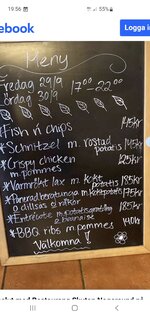 19:56
55%
ebook
Logga i
Meny
Fredag 29/9
Lördag 30/9
17⁰⁰-22⁰⁰
*Fish n chips 145kr
*Schnitzel m. rostad
potatis 145kr
*Crispy chicken 125kr
m pommes
*Varmrökt lax m. kokt
potatis 185kr
*Panerad m kokt potatis 175kr
o dillsås citroner
*Entrecote m. potatisgratäng
o bearnaise 185kr
*BBQ ribs m. pommes 140kr
Välkomna!